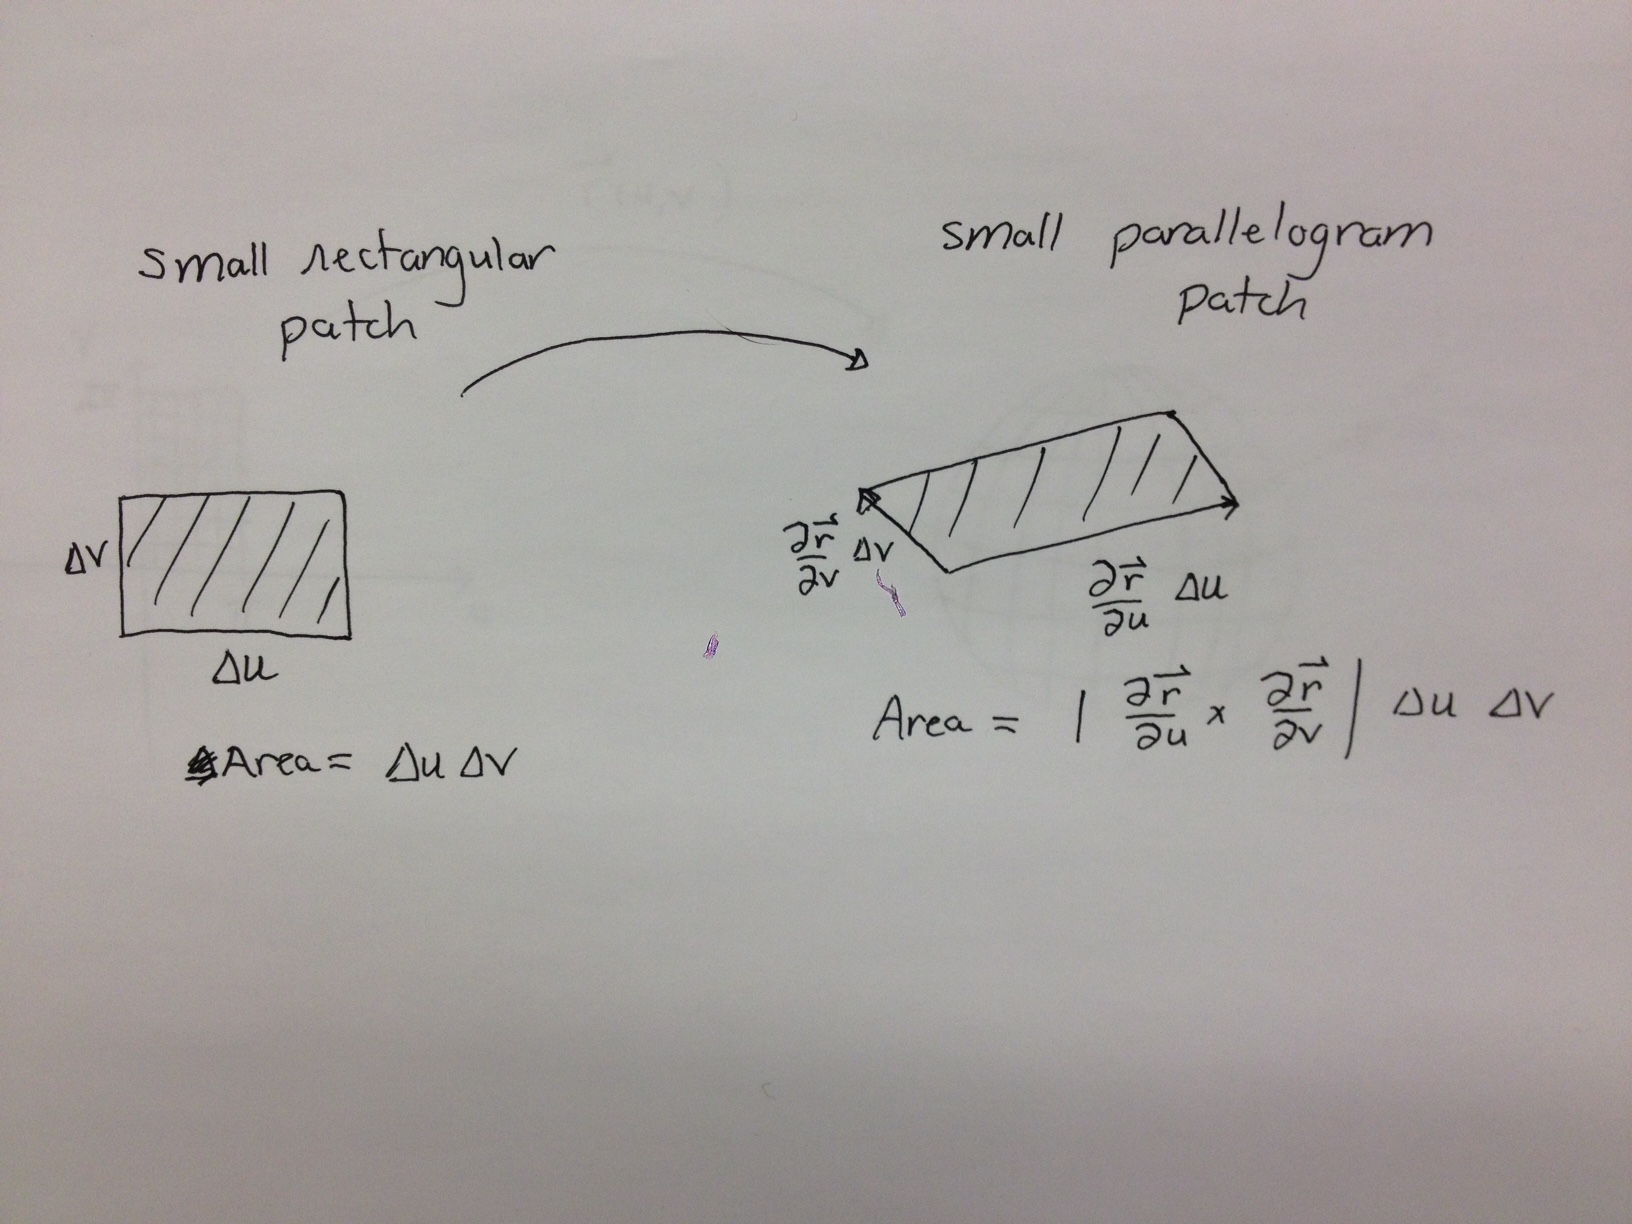 Small rectangular
patch
Δv
Δu
Area = Δu Δv
small parallelogram
patch
∂r⃗/∂v Δv
∂r⃗/∂u Δu
Area = | ∂r⃗/∂u × ∂r⃗/∂v | Δu Δv